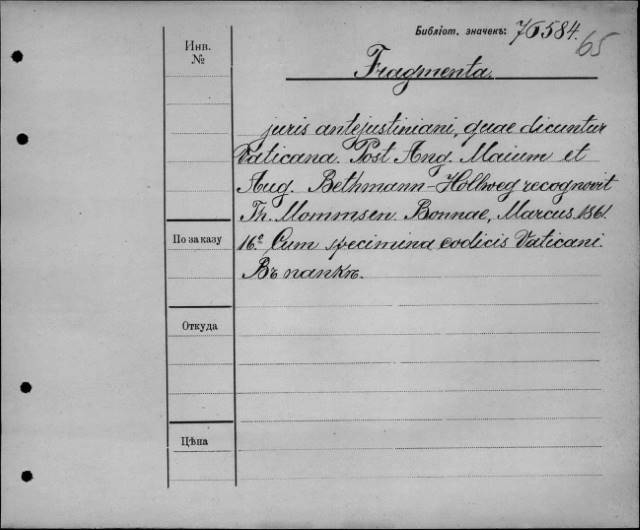 Библіот. значекъ: 76584.
65
Инв.
№
Fragmenta.
juris antejustiniani, quae dicuntur
Vaticana. Post Ang. Maium et
Aug. Bethmann-Hollweg recognovit
Th. Mommsen. Bonnae, Marcus. 1861.
По заказу
16.º Cum specimina codicis Vaticani.
Въ папкѣ.
Откуда
Цѣна